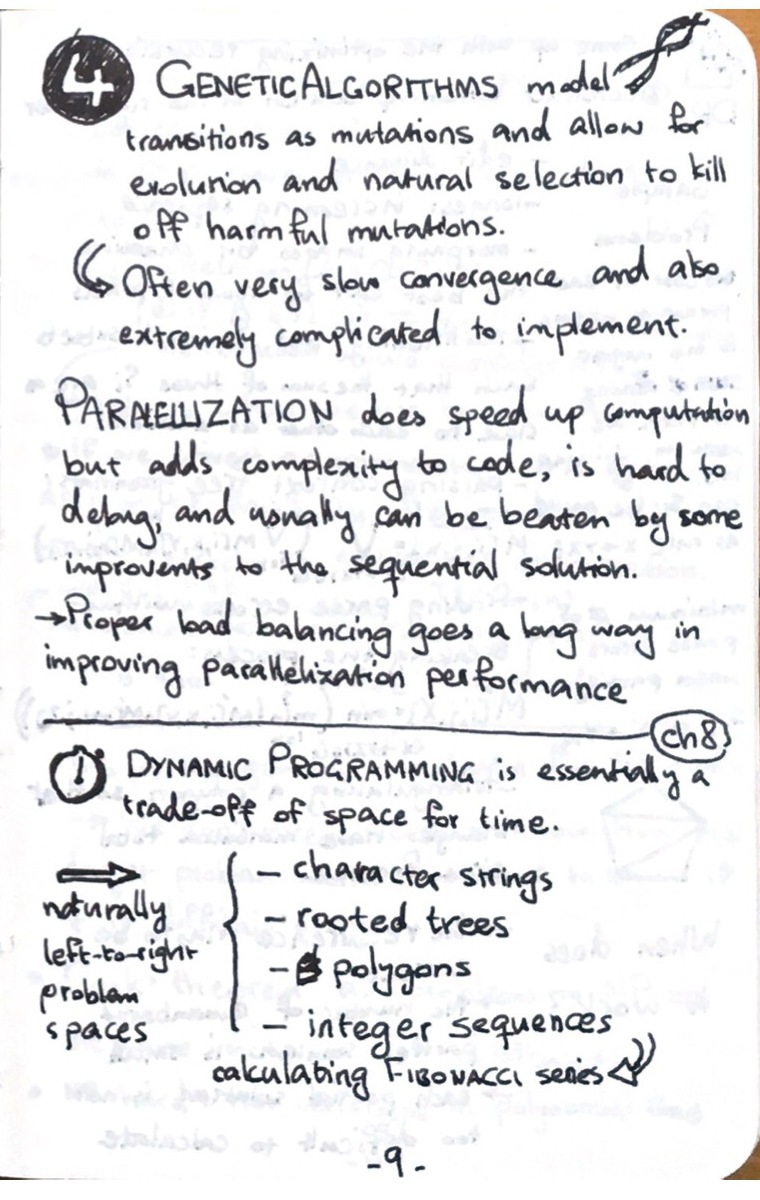 4 GENETIC ALGORITHMS model
transitions as mutations and allow for
evolution and natural selection to kill
off harmful mutations.
↳ Often very slow convergence and also
extremely complicated to implement.
PARALELLIZATION does speed up computation
but adds complexity to code, is hard to
debug, and usually can be beaten by some
improvents to the sequential solution.
→ Proper load balancing goes a long way in
improving parallelization performance
ch8
! DYNAMIC PROGRAMMING is essentially a
trade-off of space for time.
⇒ naturally
left-to-right
problem
spaces
- character strings
- rooted trees
- polygons
- integer sequences
calculating FIBONACCI series
-9-